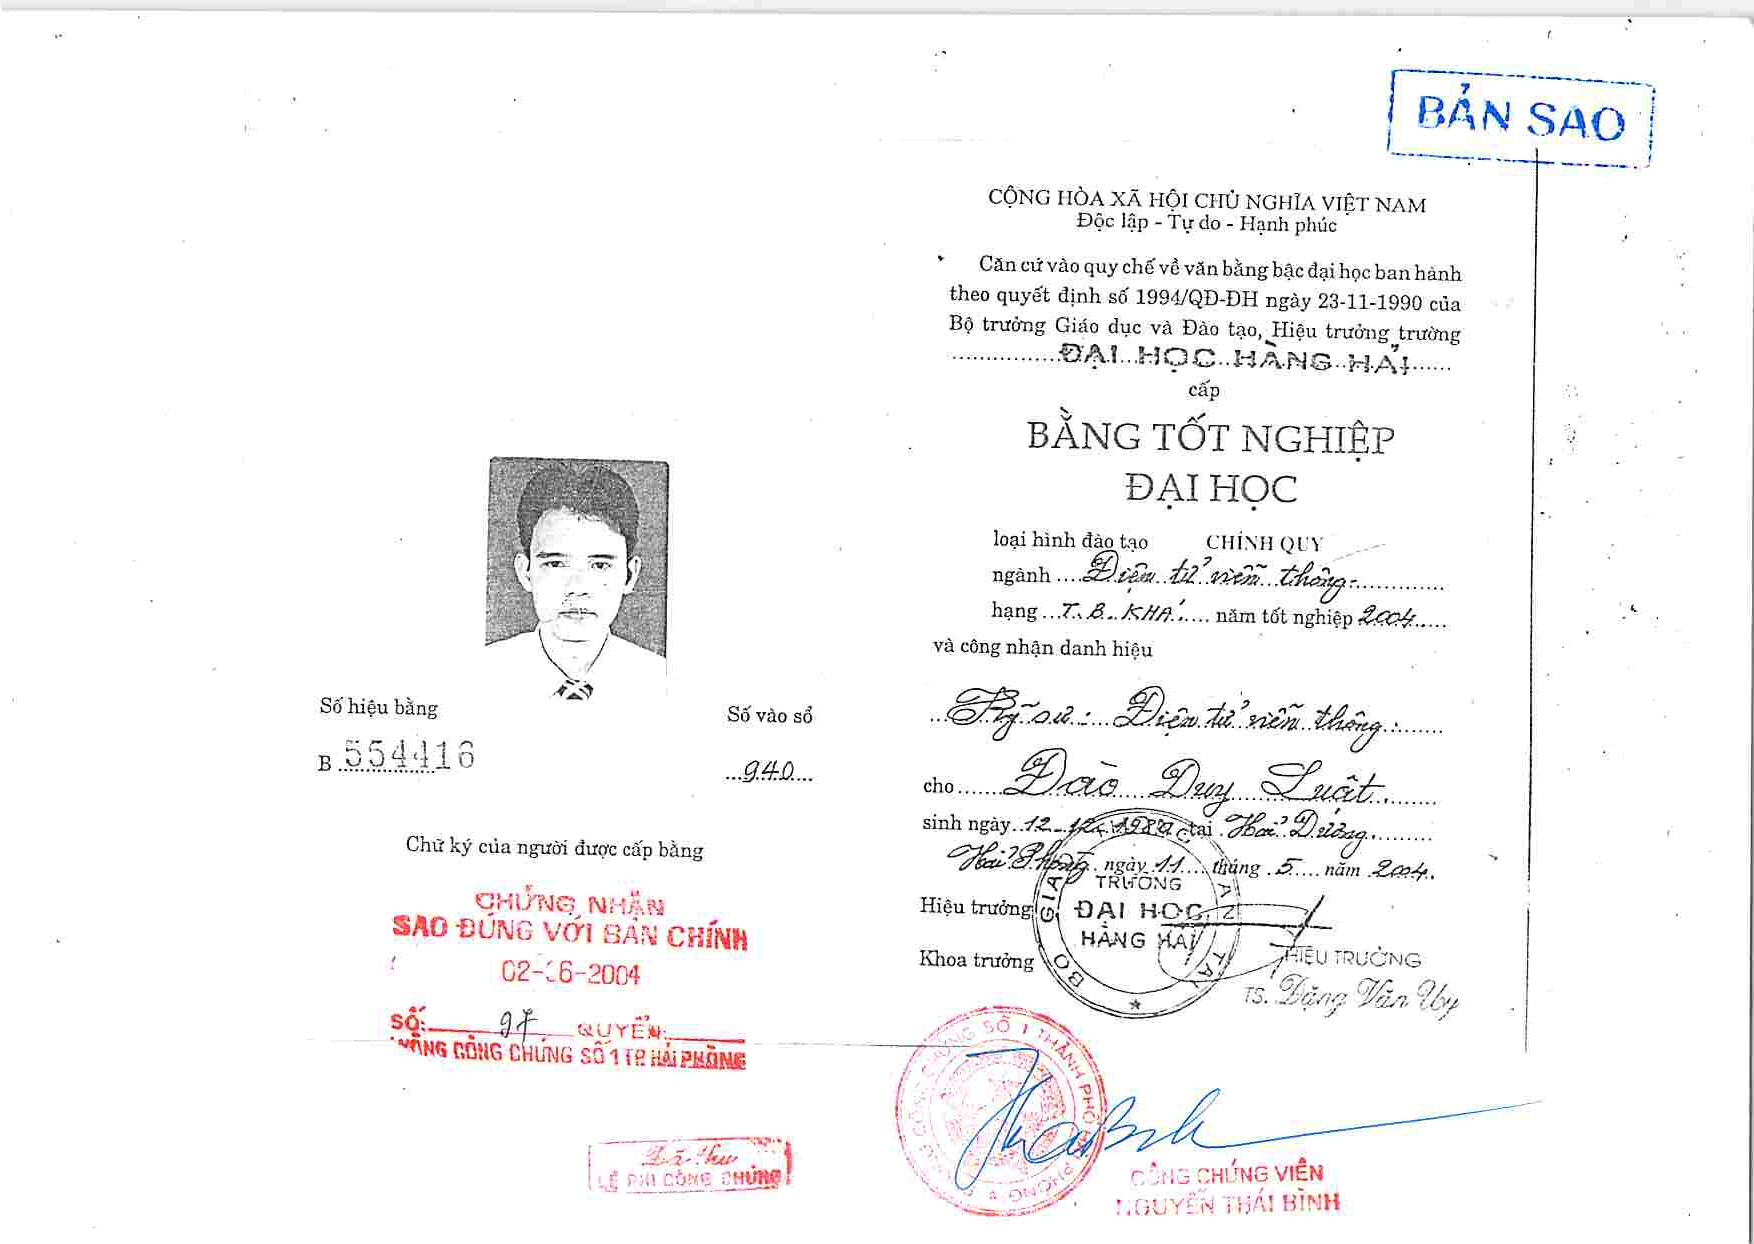 BẢN SAO
CỘNG HÒA XÃ HỘI CHỦ NGHĨA VIỆT NAM
Độc lập - Tự do - Hạnh phúc
Căn cứ vào quy chế về văn bằng bậc đại học ban hành
theo quyết định số 1994/QĐ-ĐH ngày 23-11-1990 của
Bộ trưởng Giáo dục và Đào tạo, Hiệu trưởng trường
ĐẠI HỌC HÀNG HẢI
cấp
BẰNG TỐT NGHIỆP
ĐẠI HỌC
loại hình đào tạo CHÍNH QUY
ngành Điện tử viễn thông
hạng T.B. KHÁ năm tốt nghiệp 2004
và công nhận danh hiệu
Kỹ sư: Điện tử viễn thông
cho Đào Duy Luật
sinh ngày 12. 12. tại Hải Dương
Hải Phòng ngày 11 tháng 5 năm 2004
Hiệu trưởng
Khoa trưởng
TRƯỜNG
ĐẠI HỌC
HÀNG HẢI
HIỆU TRƯỞNG
TS. Đặng Văn Uy
Số hiệu bằng
B 554416
Số vào sổ
940
Chữ ký của người được cấp bằng
CHỨNG NHẬN
SAO ĐÚNG VỚI BẢN CHÍNH
02-06-2004
SỐ: 97 QUYỂN:
PHÒNG CÔNG CHỨNG SỐ 1 TP. HẢI PHÒNG
Đã thu
LỆ PHÍ CÔNG CHỨNG
PHÒNG CÔNG CHỨNG SỐ 1 THÀNH PHỐ HẢI PHÒNG
CÔNG CHỨNG VIÊN
NGUYỄN THÁI BÌNH